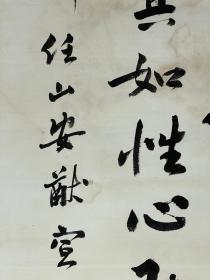 如性心
任山安猷宣